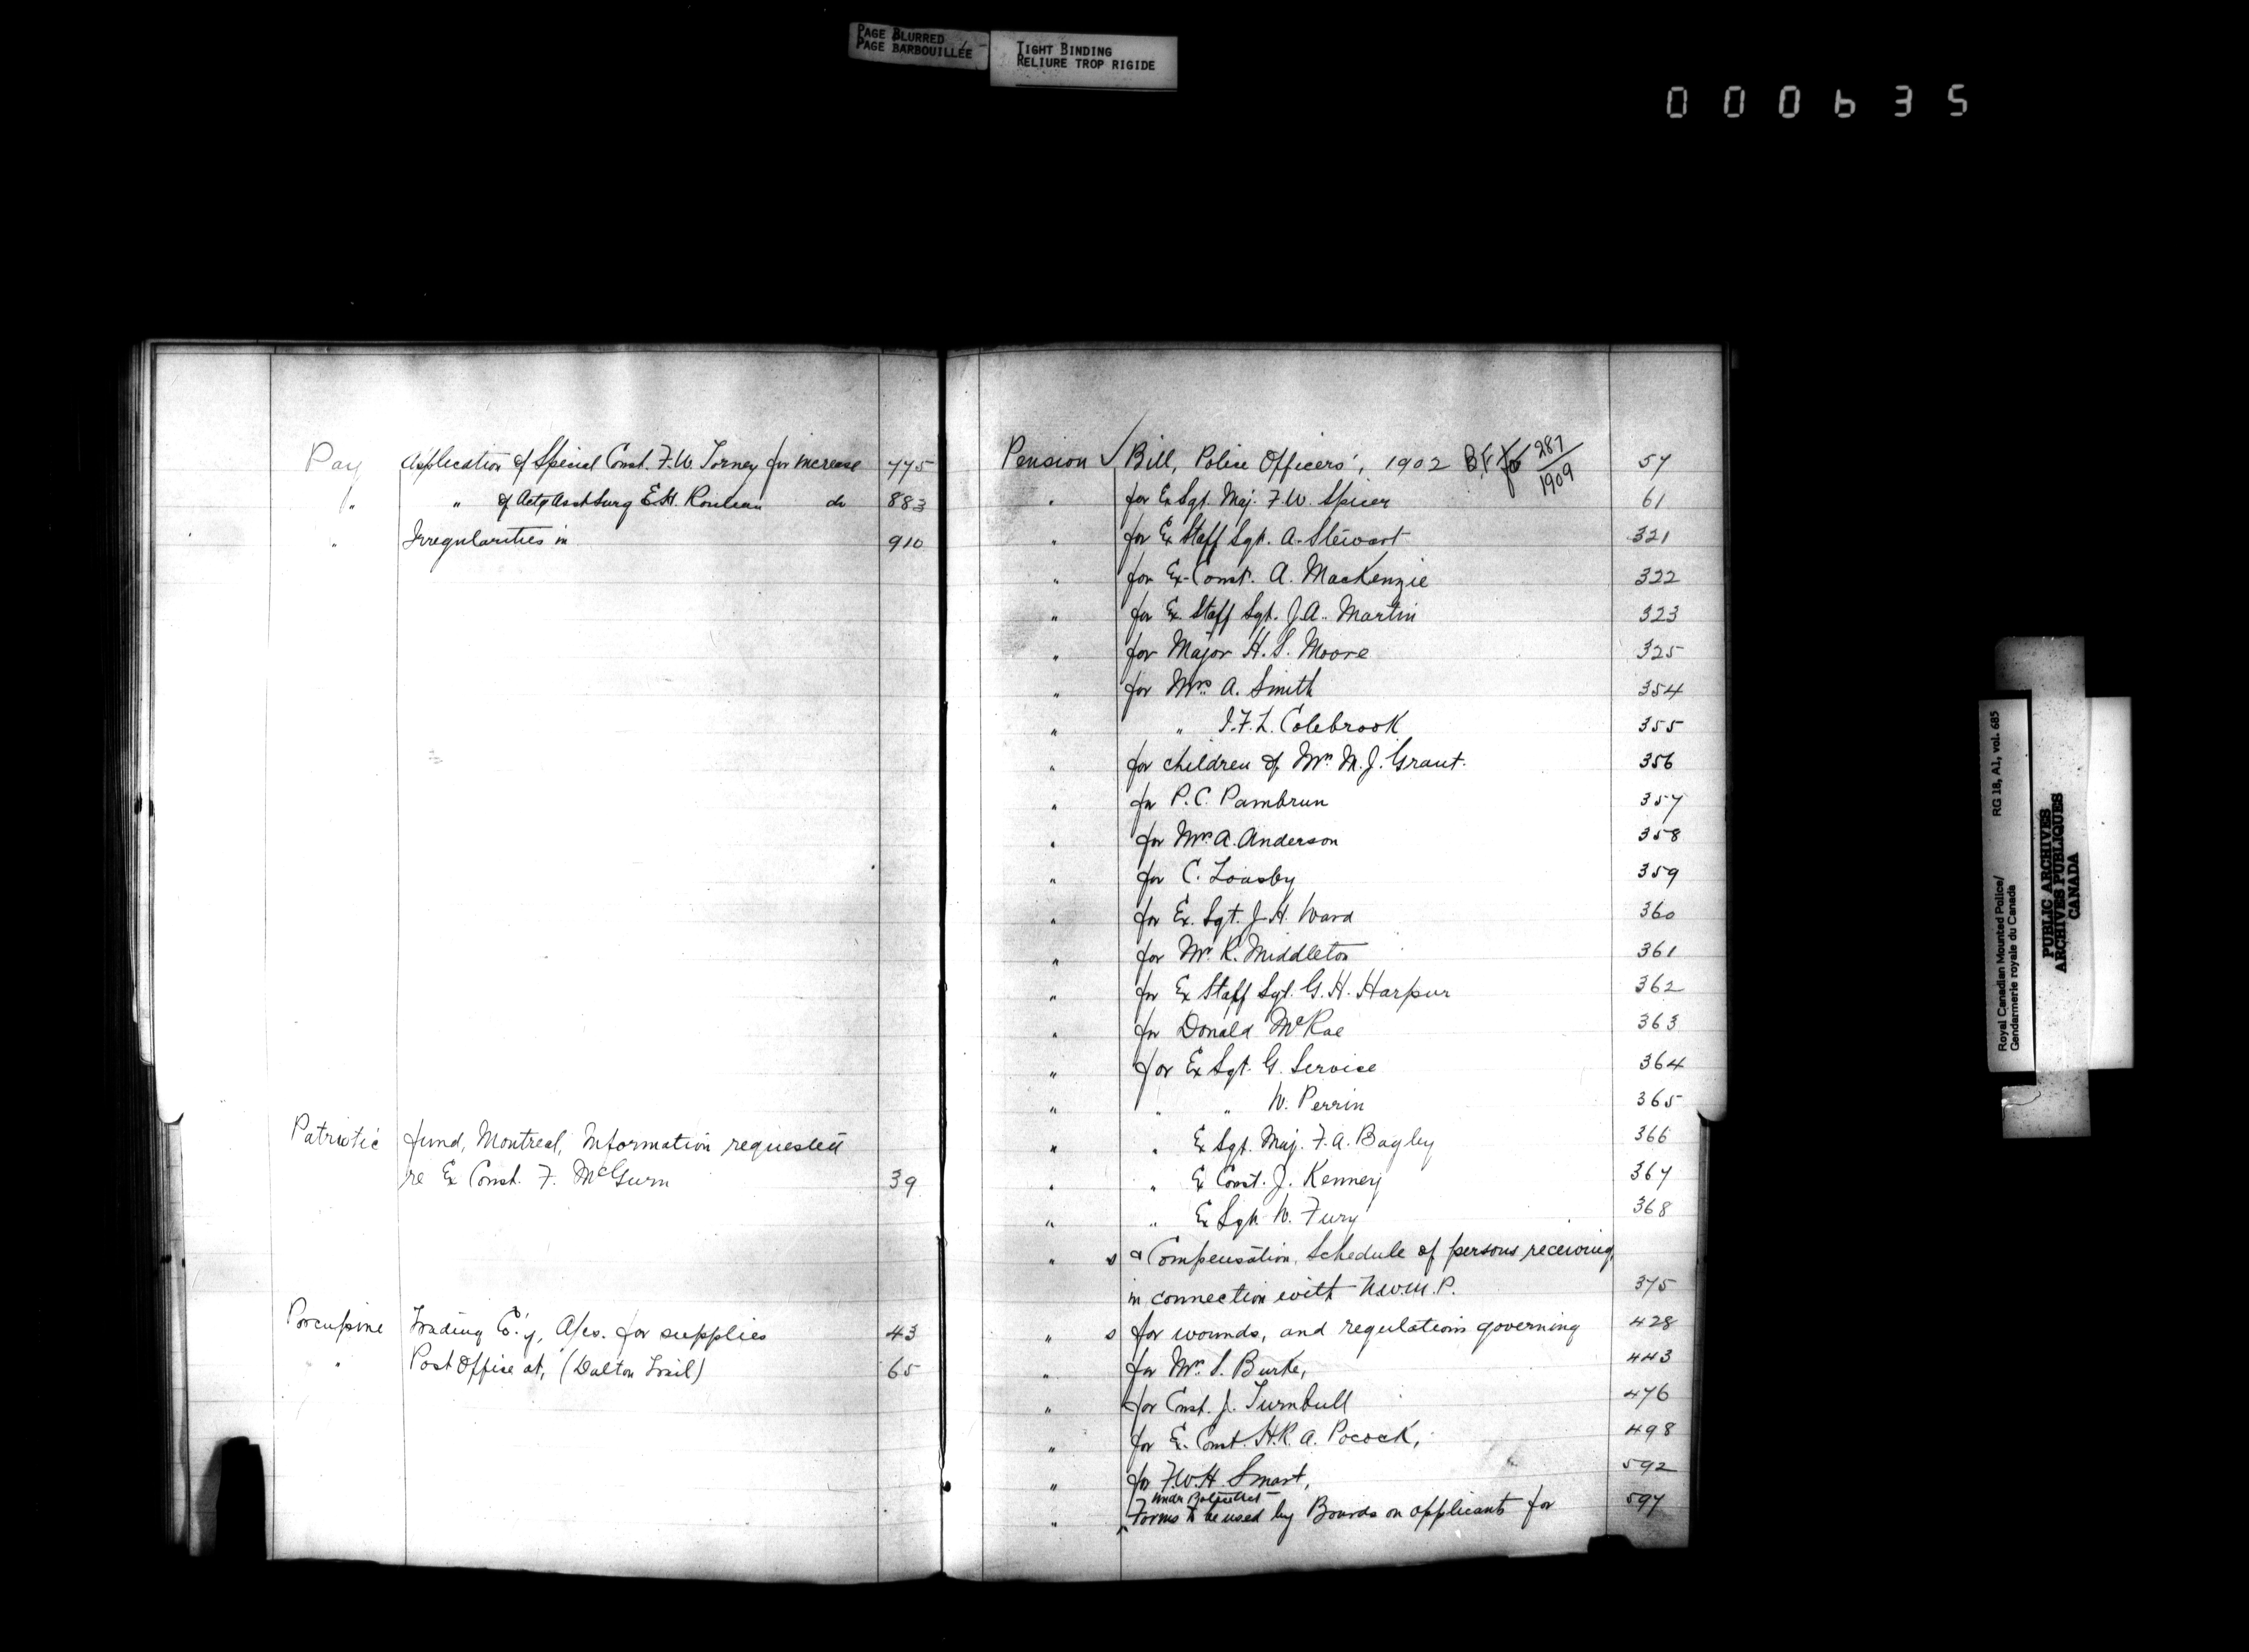 PAGE BLURRED
PAGE BARBOUILLÉE
TIGHT BINDING
RELIURE TROP RIGIDE
000635
Pay Application of Special Const. F.W. Torney for increase 775
" " of Actg Asst Surg E.H. Rouleau do 883
" Irregularities in 910
Patriotic fund, Montreal, Information requested
re Ex Const. F. McGurn 39
Porcupine Trading Co'y, A/cs. for supplies 43
" Post Office at, (Dalton Trail) 65
Pension ✓ Bill, Police Officers', 1902 B.F. to 287/1909 57
" for Ex Sgt. Maj. F.W. Spicer 61
" for Ex Staff Sgt. A. Stewart 321
" for Ex-Const. A. MacKenzie 322
" for Ex. Staff Sgt. J.A. Martin 323
" for Major H.S. Moore 325
" for Mrs. A. Smith 354
" " J.F.L. Colebrook 355
" for children of Mrs. M.J. Grant. 356
" for P.C. Pambrun 357
" for Mrs. A. Anderson 358
" for C. Loasby 359
" for Ex. Sgt. J.H. Ward 360
" for Mr. K. Middleton 361
" for Ex Staff Sgt. G.H. Harpur 362
" for Donald McRae 363
" for Ex Sgt. G. Service 364
" " " W. Perrin 365
" " Ex Sgt. Maj. F.A. Bagley 366
" " Ex Const. J. Kenney 367
" " Ex Sgt. W. Fury 368
" s & Compensation, Schedule of persons receiving,
in connection with N.W.M.P. 375
" s for wounds, and regulations governing 428
" for Mrs. S. Burke, 443
" for Const. J. Turnbull 476
" for Ex. Const. H.R.A. Pocock, 498
" for F.W.H. Smart, 592
under Police Act
" Forms to be used by Boards on applicants for 597
Royal Canadian Mounted Police/ RG 18, A1, vol. 685
Gendarmerie royale du Canada
PUBLIC ARCHIVES
ARCHIVES PUBLIQUES
CANADA